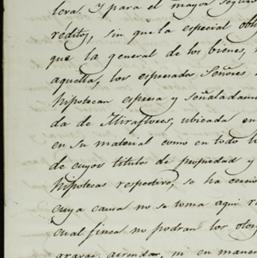 leva. Y para el mayor segur
redity, sin que la especial obli
que la general de los bienes,
aquella, los espresados Señores
hipotecan espresa y señaladam
da de Miraflores, ubicada en
en su material como en todo l
de cuyos titulos de propiedad y
hipotecas respectivo, se ha
cuya causa no se toma aqui r
cual finca no podran los otor
gravar, arrendar, ni en manera